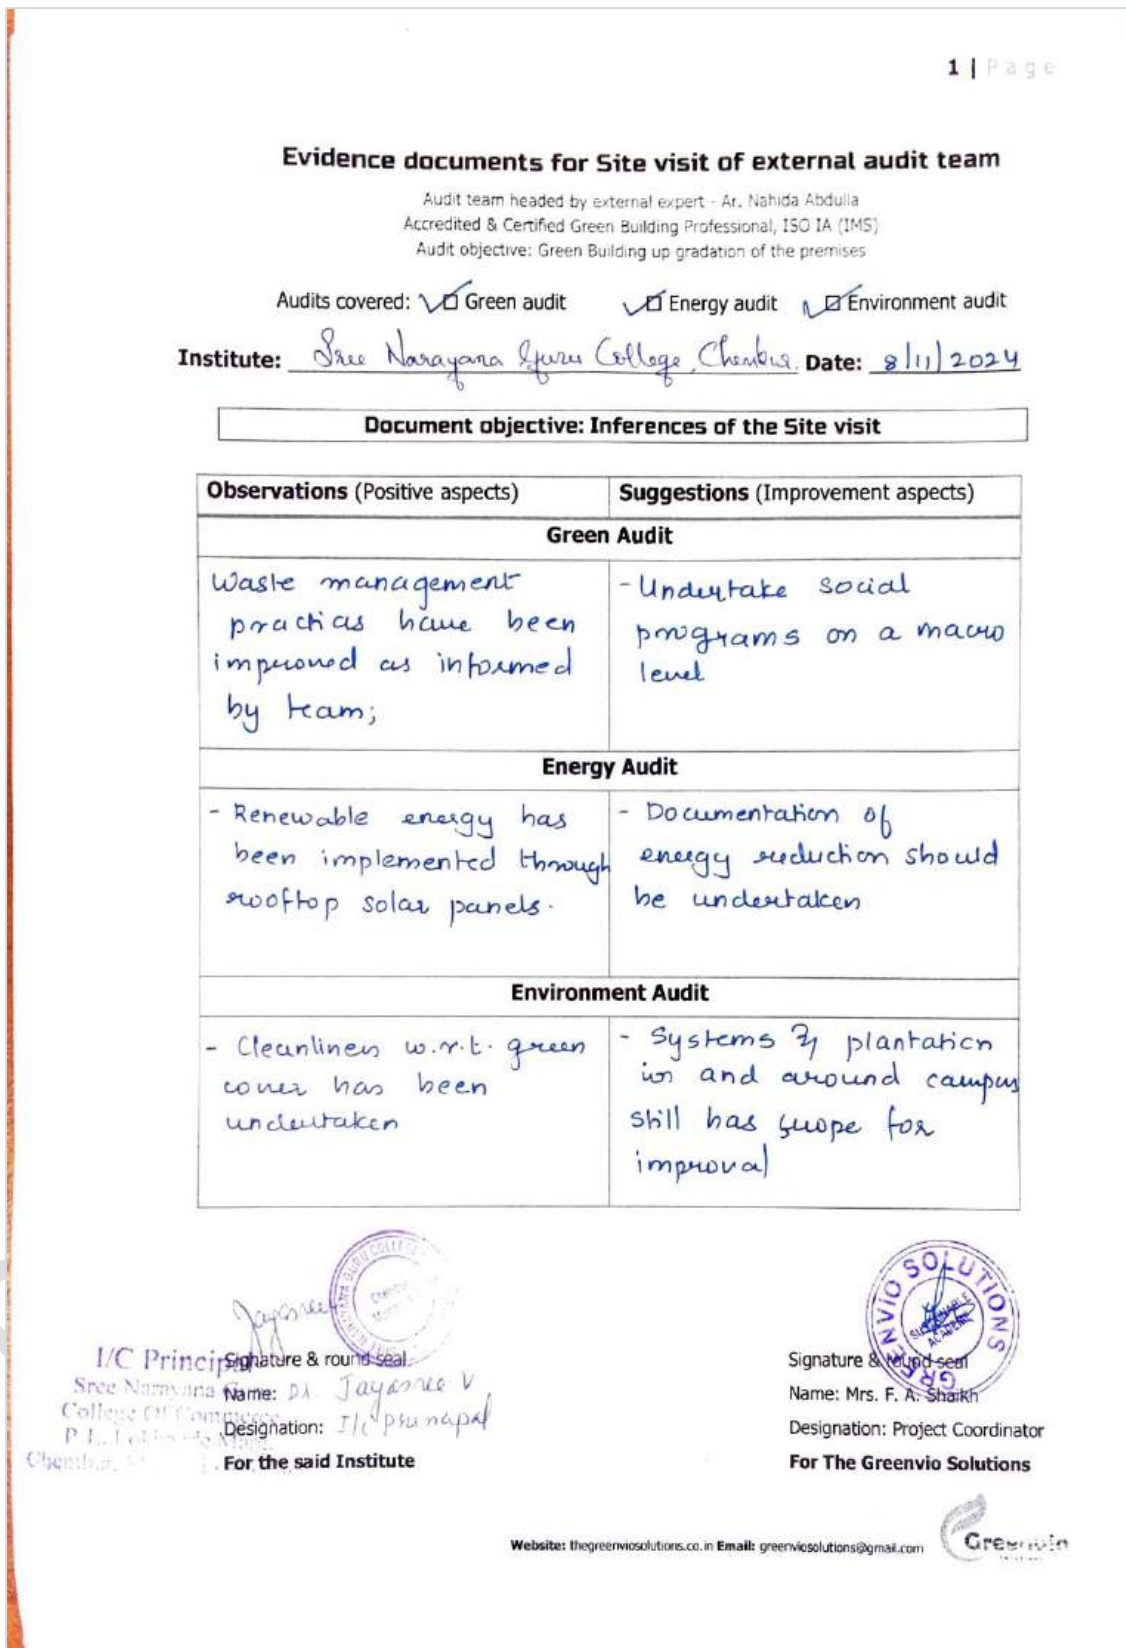 1 | Page
Evidence documents for Site visit of external audit team
Audit team headed by external expert - Ar. Nahida Abdulla
Accredited & Certified Green Building Professional, ISO IA (IMS)
Audit objective: Green Building up gradation of the premises
Audits covered: Green audit Energy audit Environment audit
Institute: Sree Narayana Guru College, Chembur. Date: 8/11/2024
Document objective: Inferences of the Site visit
Observations (Positive aspects) Suggestions (Improvement aspects)
Green Audit
Waste management
practices have been
improved as informed
by team;
- Undertake social
programs on a macro
level
Energy Audit
- Renewable energy has
been implemented through
rooftop solar panels.
- Documentation of
energy reduction should
be undertaken
Environment Audit
- Cleanliness w.r.t. green
cover has been
undertaken
- Systems of plantation
in and around campus
still has scope for
improval
Jayasree
I/C Principal
Sree Narayana Guru
College Of Commerce
P. L.
Chembur,
Signature & round seal
Name: Dr Jayasree V
Designation: I/c Principal
For the said Institute
GREENVIO SOLUTIONS
SUSTAINABLE
ACADEMY
Signature & round seal
Name: Mrs. F. A. Shaikh
Designation: Project Coordinator
For The Greenvio Solutions
Website: thegreenviosolutions.co.in Email: greenviosolutions@gmail.com
Greenvio